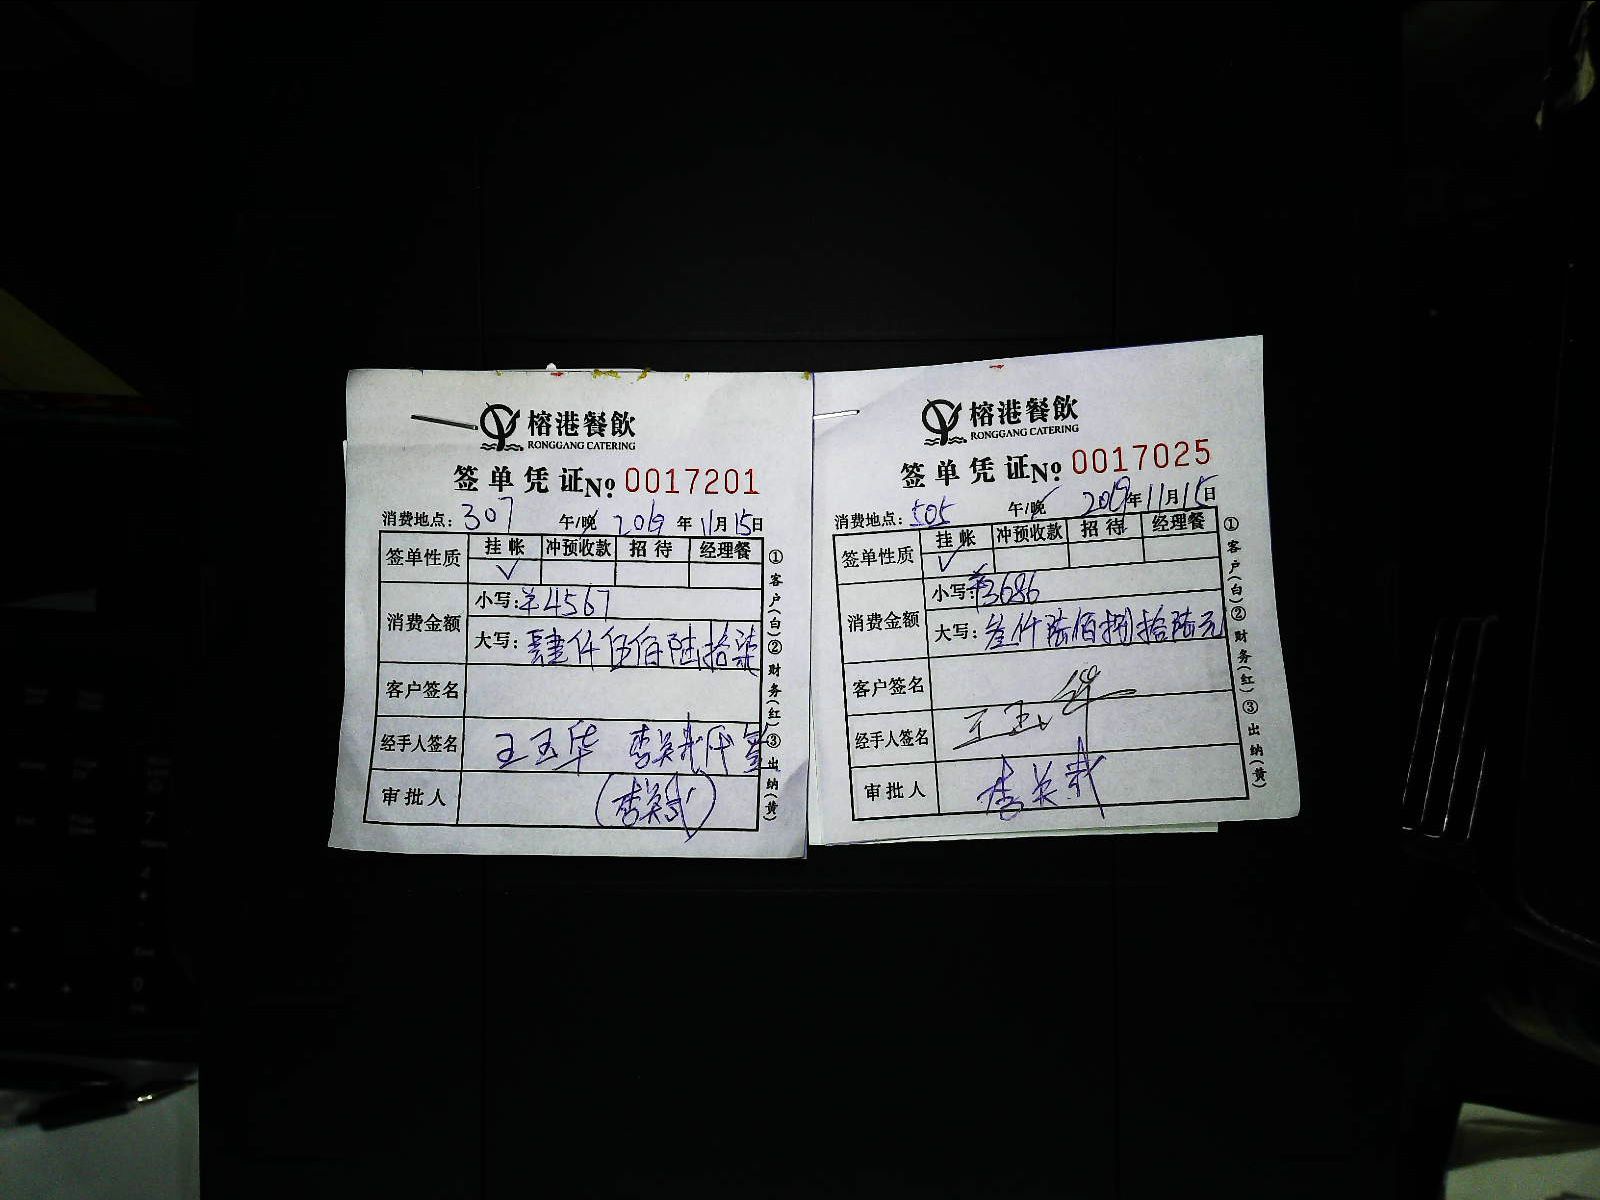 榕港餐飲
RONGGANG CATERING
签单凭证№ 0017201
消费地点: 307 午/晚 2019年11月15日
签单性质 挂帐 冲预收款 招待 经理餐
✓
消费金额 小写:¥4567
大写:肆仟伍佰陆拾柒
客户签名
经手人签名 王玉华
审批人
①客户(白)②财务(红)③出纳(黄)
榕港餐飲
RONGGANG CATERING
签单凭证№ 0017025
消费地点: 505 午/晚 2019年11月15日
签单性质 挂帐 冲预收款 招待 经理餐
✓
消费金额 小写:¥3686
大写:叁仟陆佰捌拾陆元
客户签名
经手人签名 王玉华
审批人
①客户(白)②财务(红)③出纳(黄)